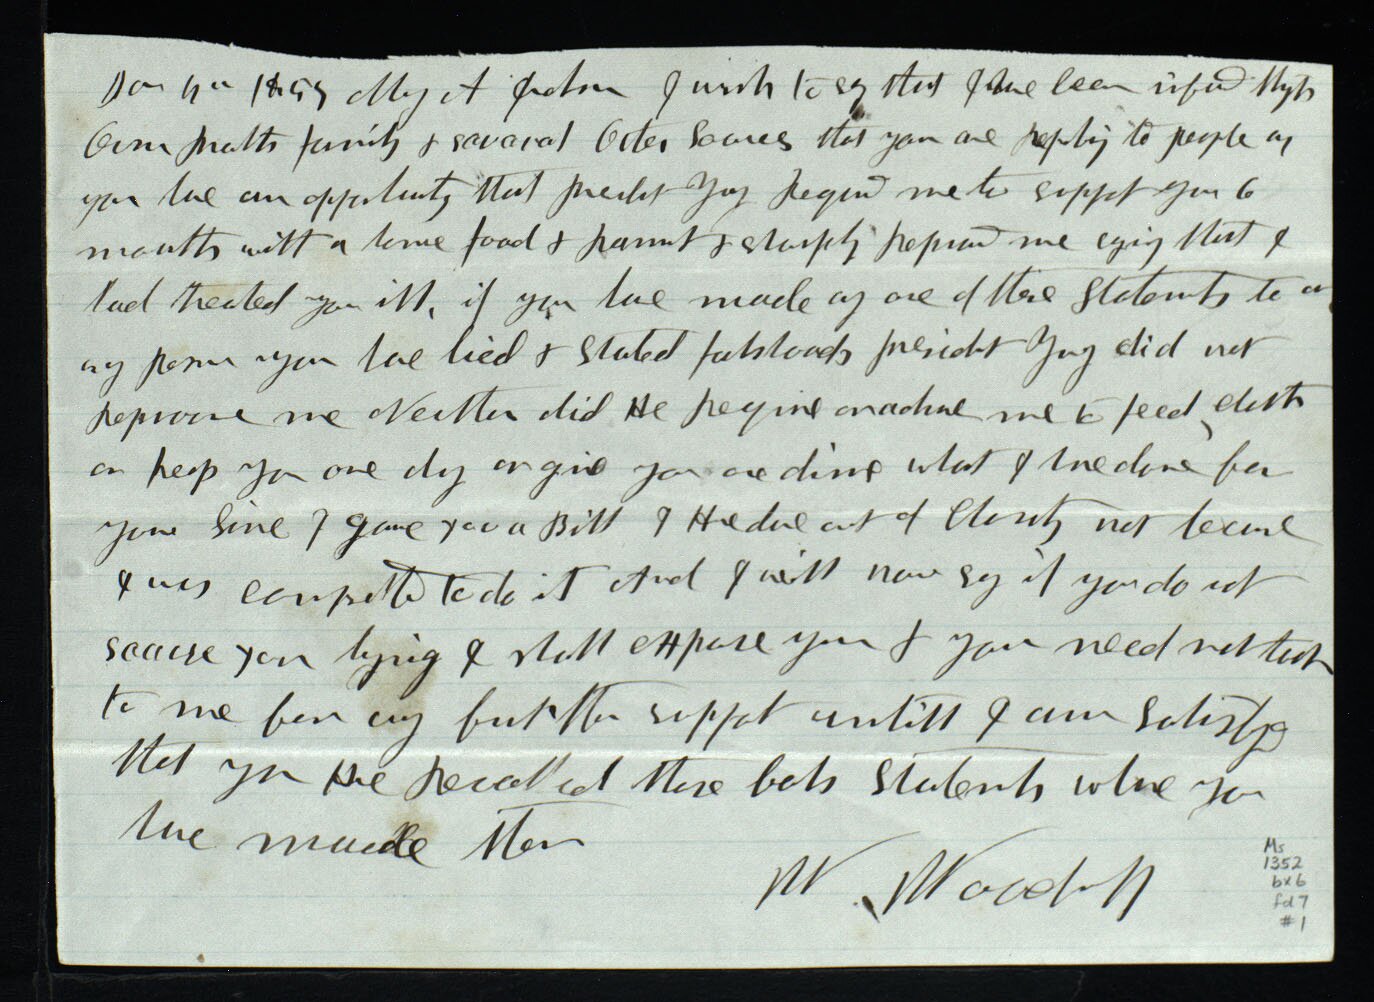 I wish to say that I have been infomd through
Orson Pratts family & several other Sources that you are reporting to people as
you have an opportunity that president Young Requird me to support you 6
months with a home food & & sharply Reproved me saying that I
had treated you ill, if you have made any one of these Statements to
any person you have lied & stated falshoods president Young did not
Reproove me Neither did He Require or advise me to feed, cloth
or keep you one day or give you one dime what I have done for
you Since I gave you a Bill I Have done out of Charity not because
I was compelled to do it And I will now say if you do not
sease your lying I shall exppose you & you need not look
to me for any further support untill I am satisfyed
that you Have Recalled these fals Statements whare you
have maede them
W. Woodruff
Ms
1352
bx 6
fd 7
#1